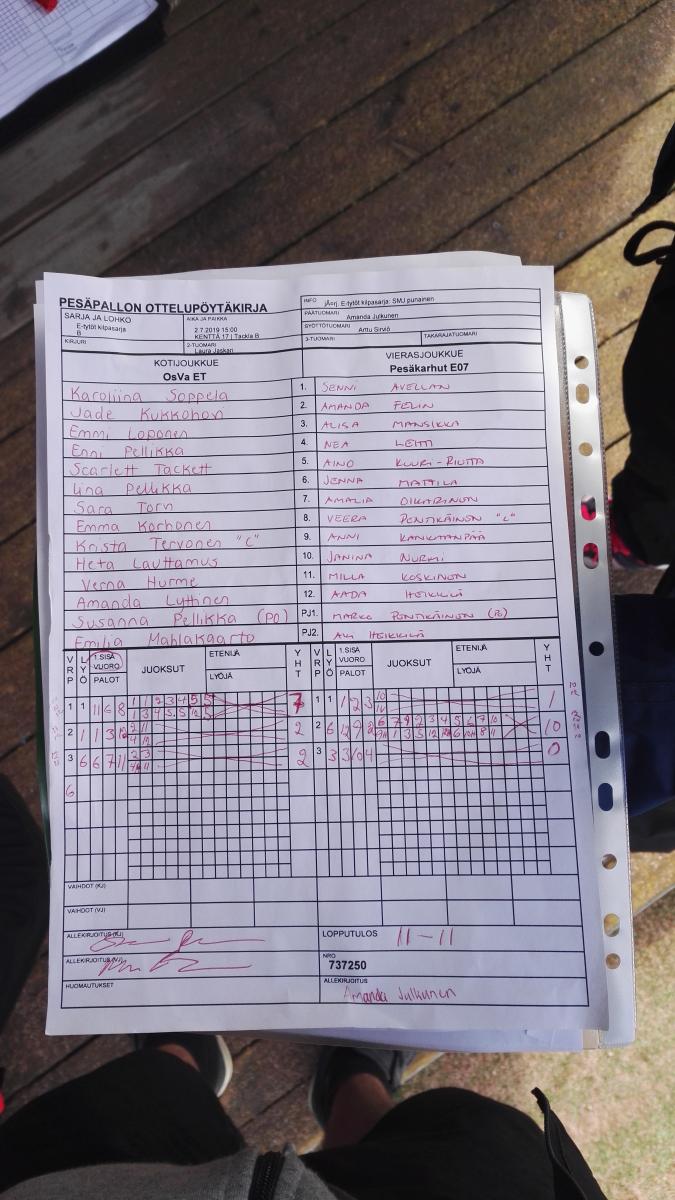 PESÄPALLON OTTELUPÖYTÄKIRJA
INFO jÄorj. E-tytöt kilpasarja: SMJ punainen
SARJA JA LOHKO E-tytöt kilpasarja B
AIKA JA PAIKKA 2.7.2019 15:00 KENTTÄ 17 | Tackla B
PÄÄTUOMARI Amanda Julkunen
SYÖTTÖTUOMARI Arttu Sirviö
KIRJURI
2-TUOMARI Laura Jaskari
3-TUOMARI
TAKARAJATUOMARI
KOTIJOUKKUE VIERASJOUKKUE
OsVa ET Pesäkarhut E07
Karoliina Soppela 1. SENNI AVELLAN
Jade Kukkohovi 2. AMANDA FELIN
Emmi Loponen 3. ALISA MANSIKKA
Enni Pellikka 4. NEA LEHTI
Scarlett Tackett 5. AINO KUURI-RIUTTA
Iina Pellikka 6. JENNA MATTILA
Sara Torn 7. AMALIA OIKARINEN
Emma Korhonen 8. VEERA PENTIKÄINEN "C"
Krista Tervonen "C" 9. ANNI KANKAANPÄÄ
Heta Lauttamus 10. JANINA NURMI
Verna Hurme 11. MILLA KOSKINEN
Amanda Lyttinen 12. AADA HEIKKILÄ
Susanna Pellikka (PO) PJ1. MARKO PENTIKÄINEN
Emilia Mahlakaarto PJ2. HEIKKILÄ
VRP LYÖ 1.SISÄ VUORO PALOT JUOKSUT ETENIJÄ LYÖJÄ YHT VRP LYÖ 1.SISÄ VUORO PALOT JUOKSUT ETENIJÄ LYÖJÄ YHT
1 1 11 6 8 1 1 2 3 4 5 5 7 1 1 1 2 3 10 1
1 3 4 5 5 12 5
2 1 1 3 12 2 11 2 2 6 12 9 2 6 7 9 2 3 4 5 6 7 10 10
4 12
3 6 6 7 11 2 3 2 3 3 3 10 4 0
6
VAIHDOT (KJ)
VAIHDOT (VJ)
ALLEKIRJOITUS (KJ) LOPPUTULOS 11-11
ALLEKIRJOITUS (VJ) NRO 737250
HUOMAUTUKSET ALLEKIRJOITUS Amanda Julkunen